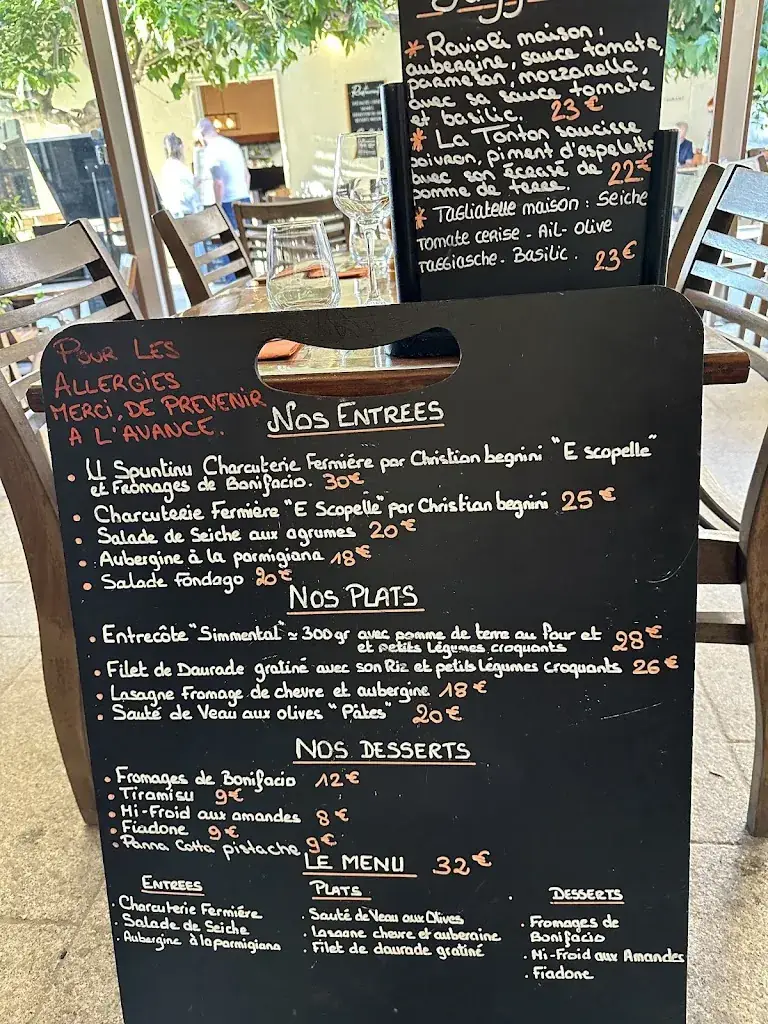 * Ravioli maison,
aubergine, sauce tomate,
parmesan, mozzarella,
avec sa sauce tomate
et basilic. 23€
* La Tonton saucisse
poivron, piment d'espelette
avec son Écrasé de
pomme de terre. 22€
* Tagliatelle maison : Seiche
Tomate cerise - Ail - Olive
Taggiasche - Basilic. 23€
POUR LES
ALLERGIES
MERCI, DE PREVENIR
A L'AVANCE.
NOS ENTREES
• U Spuntinu Charcuterie Fermiére par Christian begnini "E scopelle"
et Fromages de Bonifacio. 30€
• Charcuterie Fermière "E Scopelle" par Christian begnini 25€
• Salade de Seiche aux agrumes 20€
• Aubergine à la parmigiana 18€
• Salade Fondago 20€
NOS PLATS
• Entrecôte "Simmental" ≃ 300gr avec pomme de terre au four et
et petits légumes croquants 28€
• Filet de Daurade gratiné avec son Riz et petits légumes croquants 26€
• Lasagne Fromage de chevre et aubergine 18€
• Sauté de Veau aux olives "Pâtes" 20€
NOS DESSERTS
• Fromages de Bonifacio 12€
• Tiramisu 9€
• Mi-Froid aux amandes 8€
• Fiadone 9€
• Panna Cotta pistache 9€
LE MENU 32€
ENTREES
• Charcuterie Fermiére
• Salade de Seiche
• Aubergine à la parmigiana
PLATS
• Sauté de Veau aux Olives
• Lasagne chevre et aubergine
• Filet de daurade gratiné
DESSERTS
• Fromages de
Bonifacio
• Mi-Froid aux Amandes
• Fiadone